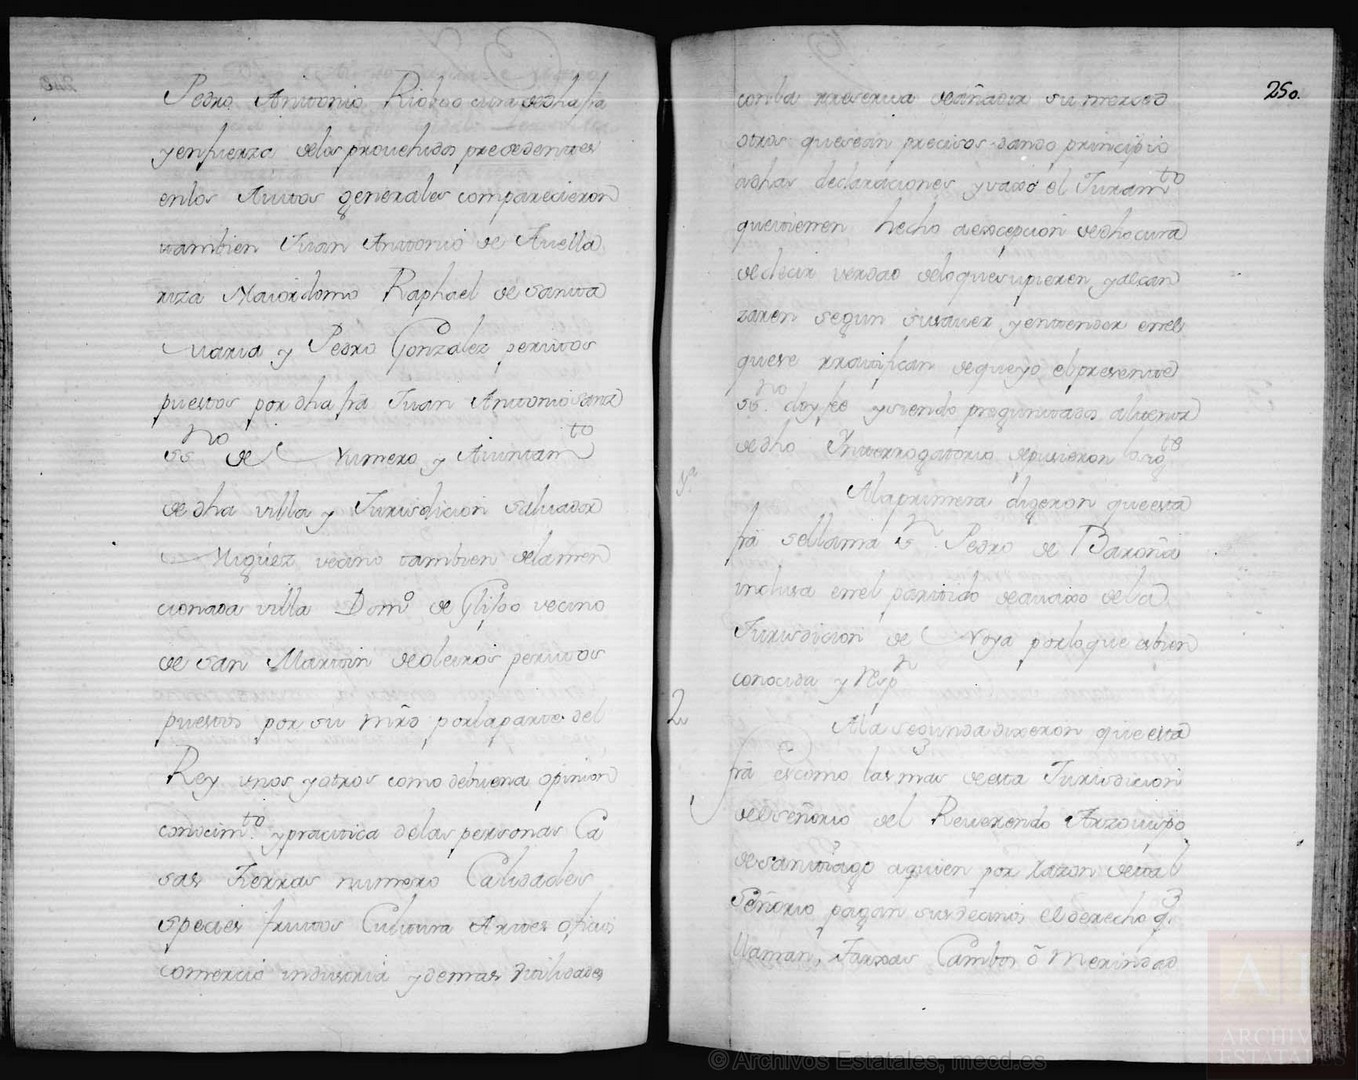 Pedro Antonio Rioboo cura de dha fra
y en fuerza delos prouehidos precedentes
enlos Auttos generales comparecieron
tambien Juan Antonio de Auella
riza Maiordomo Raphael de Santta
Maria y Pedro Gonzalez perittos
puestos por dha fra Juan Antonio
ssno de Numero y Aiuntamto
de dha villa y Jurisdicion Saluador
Miguez vecino tambien dela men
cionada villa Domo de vecino
de San Marttin de oleiros perittos
puestos por su mrd porla parte del
Rey unos y otros como de buena opinion
conocimto y practtica delas personas Ca
sas tierras numero Calidades
species fruttos Culttura Artes oficios
comercio industtria y demas Utilidades
250.
con la rreserua de añadir su merced
otros que sean precisos dando principio
adhas declaraciones y vaxo el Juramto
que tienen hecho a excepcion de dho cura
de decir verdad delo que supieren y alcan
zaren segun su sauer y entender en el
que se rrattifican de que yo el presentte
ssno doy fee y siendo preguntados al thenor
de dho Interrogatorio depusieron lo sigte
1a
Ala primera digeron que esta
fra se llama Sn Pedro de Baroña
inclusa en el partido de auaxo de la
Jurisdicion de Noya por lo que es bien
conocida y respn
2
Ala segunda dixeron que esta
fra es como las mas de esta Jurisdicion
de señorio del Reuerendo Arzouispo
de Santtiago a quien por razon de tal
Señorio pagan sus vecinos el derecho q.
llaman, Jantar Cambos ô Merindad
© Archivos Estatales, mecd.es
AI
ARCHIVOS
ESTATALES